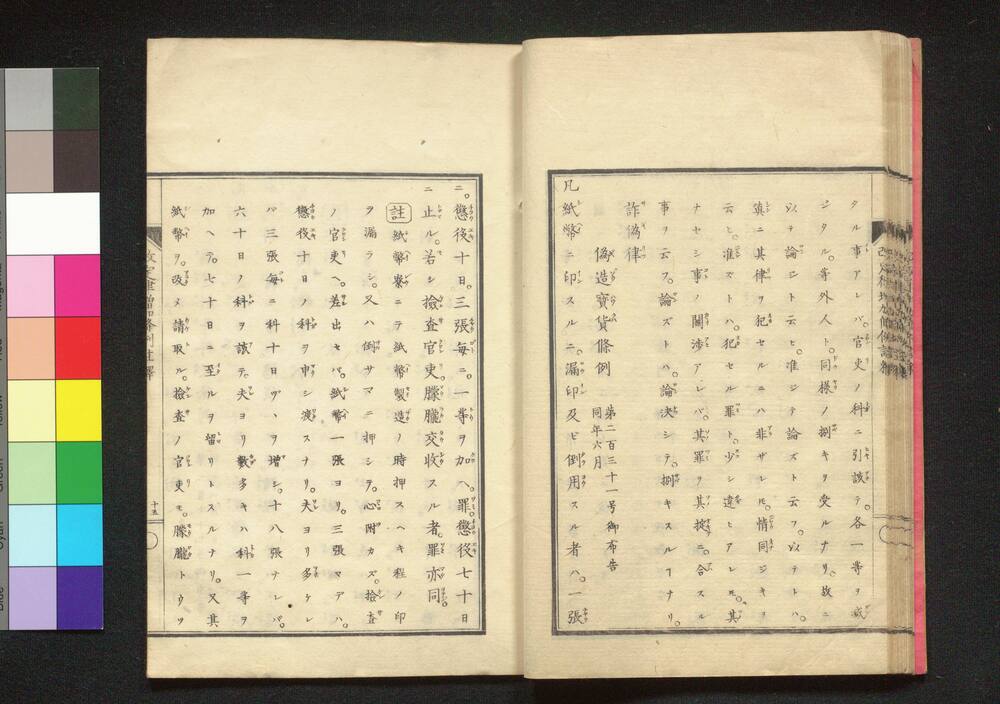 タル事アレバ。官吏ノ科ニ引該テ。各一等ヲ減
ジタル。等外人ト。同様ノ捌キヲ受ルナリ。故ニ
以テ論ジト云ヒ。准ジテ論ズト云フ。以テトハ。
眞ニ其律ヲ犯セルニハ非ザレ𪜈。情同ジキヲ
云ヒ。准ズトハ。犯セル罪ト。少シ違ヒアレ𪜈。其
ナセシ事ノ關渉アレバ。其罪ヲ其掟ニ。合スル
事ヲ云フ。論ズトハ。論決シテ。捌キスルヿナリ。
詐僞律
僞造寳貨條例
第二百三十一号御布告
同年六月
凡紙幣ニ印スルニ。漏印及ビ倒用スル者ハ。一張
ニ。懲役十日。三張毎ニ。一等ヲ加ヘ。罪懲役七十日
ニ止ル。若シ檢査官吏。朦朧交收スル者。罪亦同。
註 紙幣寮ニテ紙幣製造ノ時押スヘキ程ノ印
ヲ漏ラシ。又ハ倒サマニ押シテ。心附カズ。撿査
ノ官吏ヘ。差出セバ。紙幣一張ヨリ。三張マデハ。
懲役十日ノ科ヲ申シ渡スナリ。夫ヨリ多ケレ
バ三張毎ニ科十日ヅヽヲ増シ。十八張ナレバ。
六十日ノ科ヲ該テ。夫ヨリ數多キハ科一等ヲ
加ヘテ。七十日ニ至ルヲ留リトスルナリ。又其
紙幣ヲ。改メ請取ル。檢査ノ官吏モ。朦朧トウツ
十五